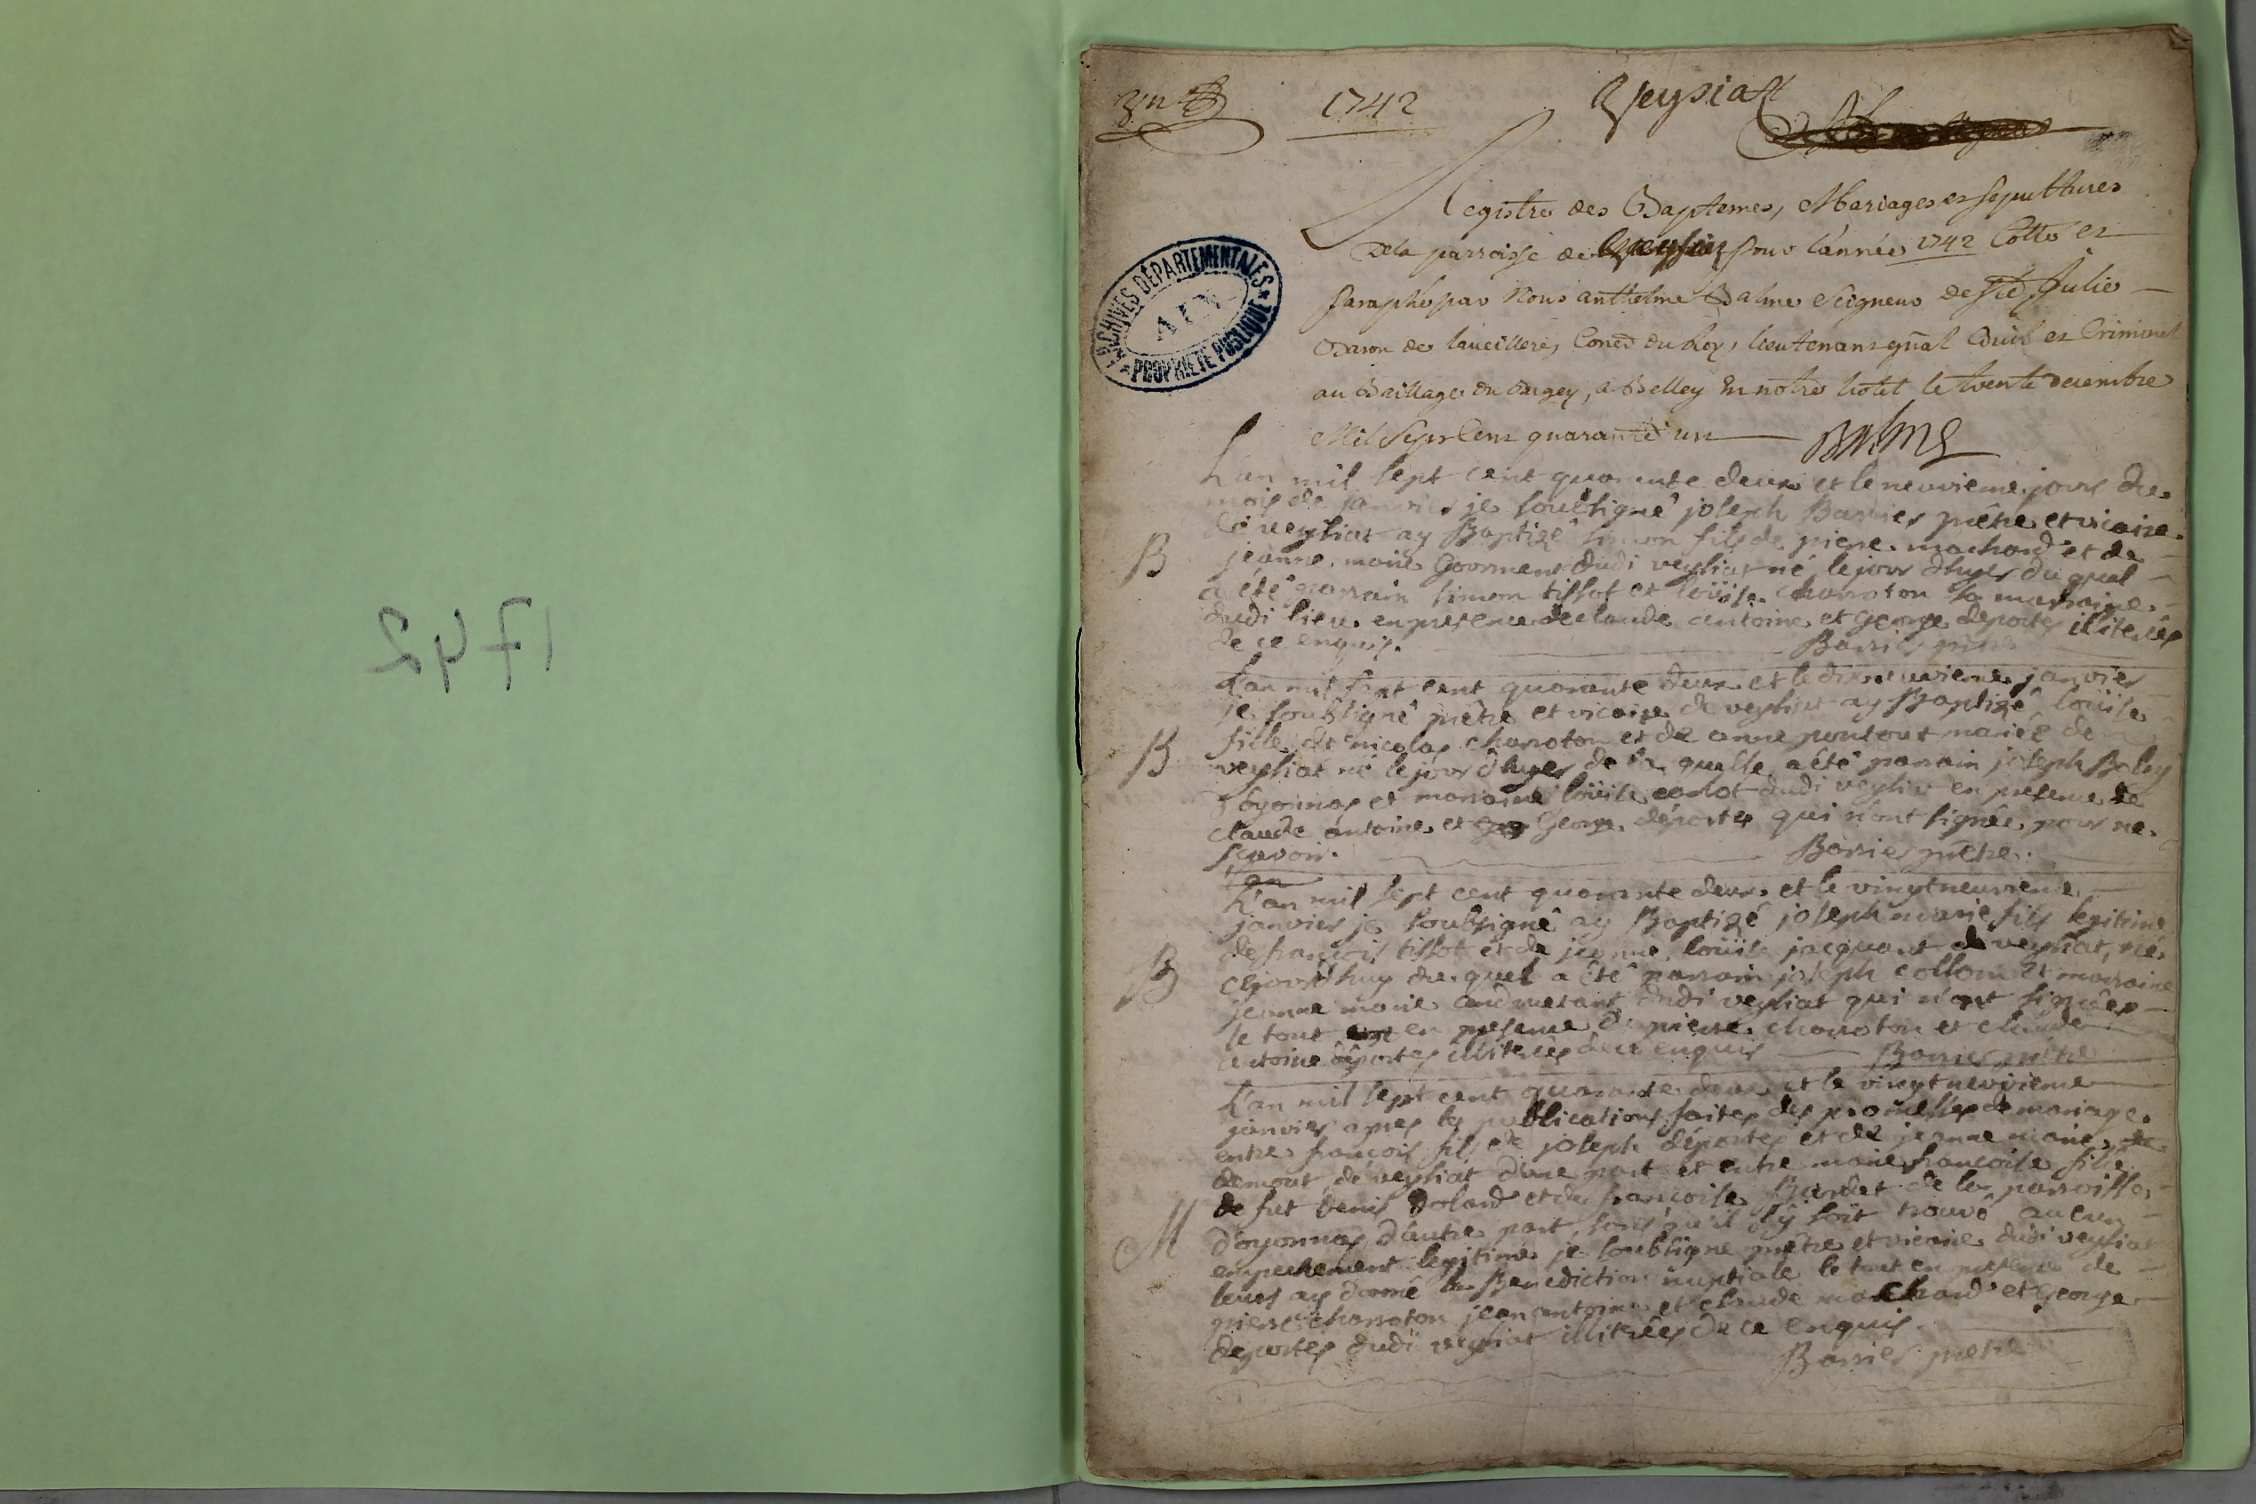 1742
1742
Veysiat
Registre des Baptemes, Mariages et sepultures
De la parroisse de Veysiat pour l'année 1742 Cotté et
paraphé par Nous anthelme Balme Seigneur de Ste Julie
Baron de Conser du Roy, lieutenant gñal Civil et Criminel
au Baillage du Bugey, a Belley En notre hotel le trente decembre
Mil Sept Cent quarante un Balme
ARCHIVES DÉPARTEMENTALES
AIN
PROPRIÉTÉ PUBLIQUE
L'an mil sept cent quarante deux et le neuvieme jours du
mois de janvier je soubsigné joseph Barrier prêtre et vicaire
de veysiat ay Baptizé simon fils de pierre machard et de
B
jeanne marie dudi veysiat né le jour d'hyer duquel
a été parrain simon tissot et loüise charroton la marraine
dudi lieu en presence de claude antoine et george deportes illiterés
de ce enquis. Barrier prêtre
L'an mil sept cent quarante deux et le dixneuvieme janvier
je soubsigné prêtre et vicaire de veysiat ay Baptizé loüise
fille de nicolas charroton et de anne mariée de
B
veysiat né le jour d'hyer de la quelle a été parrain joseph Boley
d'oyonnas et marraine loüise dudi veysiat en presence de
claude antoine et George déportes qui n'ont signées pour ne
sçavoir. Barrier prêtre.
L'an
L'an mil sept cent quarante deux et le vingtneuvieme
janvier je soubsigné ay Baptizé joseph marie fils legitime
de françois tissot et de jeanne loüise de veysiat, né
B
cejourd'huy du quel a été parrain joseph collom et marraine
jeanne marie dudi veysiat qui n'ont signées
le tout en presence de pierre charroton et claude
antoine déportes illiterés de ce enquis Barrier prêtre
L'an mil sept cent quarante deux et le vingtneuvieme
janvier apres les publications faites des promesses de mariage
entre françois fils de joseph déportes et de jeanne marie
demour de veysiat d'une part et entre marie françoise fille
de fut denis et de françoise de la parroisse
M
d'oyonnas d'autre part, sans qu'il s'y soit trouvé aucun
empechement legitime je soubsigne prêtre et vicaire dudi veysiat
leurs ay donné la Benediction nuptiale le tout en presence de
pierre charroton jean antoine et claude machard et George
deportes dudi veysiat illiterées de ce enquis.
Barrier prêtre